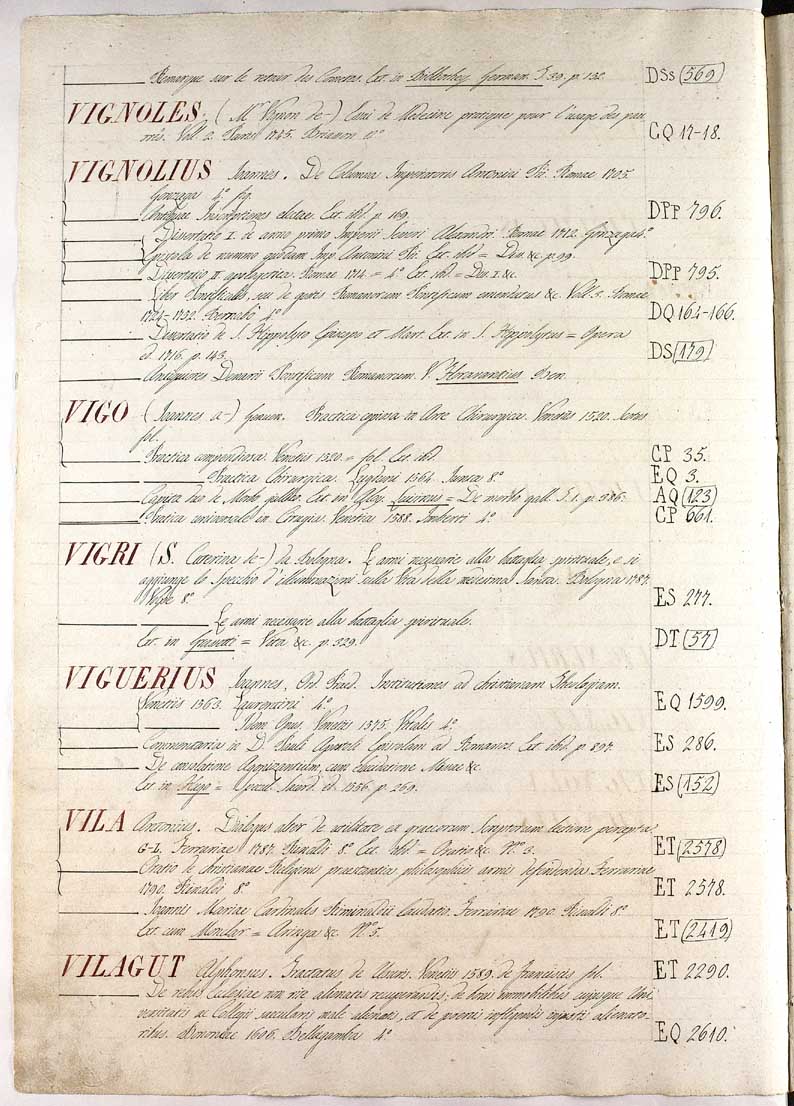 Remarque sur le retour des Cometes. Ext. in Bibliothey German. T. 39. p. 132. DSs (569)
VIGNOLES, (Mr. Vignon de-) Essai de Medecine pratique pour l'usage des pau
vres. Voll. 2. Paris 1745. 12° CQ 17-18.
VIGNOLIUS Joannes. De Columna Imperatoris Antonini Pii. Romae 1705.
Gonzaga 4° fig.
Antiquae Inscriptiones Ext. ibid. p. 169. DPp 796.
Dissertatio I. de anno primo Imperii Severi Alexandri Romae 1712. Gonzaga 4°
Epistola de nummo quodam Imp. Antonini Pii. Ext. ibid = Diss. &c. p. 99.
Dissertatio II. apologetica. Romae 1714 = 4° Ext. ibid. = Diss. I. &c. DPp 795.
Liber Pontificalis, seu de gestis Romanorum Pontificum emendatus &c. Voll. 3. Romae
1724-1752. Bernabò 4° DQ 164-166.
Dissertatio de S. Hyppolyto Episcopo et Mart. Ext. in S. Hyppolytus = Opera
ed. 1716. p. 143. DS (179)
Antiquiores Denarii Pontificum Romanorum. V. Floravantius Ben.
VIGO (Joannes a-) Practica copiosa in Arte Chirurgica. Venetiis 1520.
fol.
Practica compendiosa. Venetiis 1520 = fol. Ext. ibid. CP 35.
Practica Chirurgica. Lugduni 1564. Junta 8° EQ 3.
Ext. in Aloy. Luisinus = De morbo gall. T. 1. p. 386. AQ (123)
Pratica universale in Cirugia. Venetia 1588. Imberti 4° CP 661.
VIGRI (S. Caterina de-) da Bologna. Le armi necessarie alla battaglia spirituale, e si
aggiunge lo Specchio d'illuminazioni sulla Vita della medesima Santa. Bologna 1787.
Volpe 8° ES 277.
Le armi necessarie alla battaglia spirituale.
Ext. in Grassetti = Vita &c. p. 329. DT (57)
VIGUERIUS Joannes, Ord. Praed. Institutiones ad christianam Theologiam.
Venetiis 1563. Laurentini 4° EQ 1599.
Idem Opus. Venetiis 1575. Vitalis 4°
Commentaria in D. Pauli Apostoli Epistolam ad Romanos. Ext. ibid. p. 897. ES 286.
De consolatione Agonizantium, cum elucidatione Missae &c.
Ext. in Alegr = Specul. Sacerd. ed. 1556. p. 269. ES (152)
VILA Antonius. Dialogus alter de utilitate ex graecorum Scriptorum lectione percepta
G-L. Ferrariae 1787. Rinaldi 8° Ext. ibid = Oratio &c. N° 3. ET (2578)
Oratio de christianae Religionis praestantia philosophicis armis defendenda Ferrariae
1790. Rinaldi 8° ET 2578.
Joannis Mariae Cardinalis Riminaldi Laudatio. Ferrariae 1790. Rinaldi 8°
Ext. cum Monslar = Arteaga &c. N° 5. ET (2419)
VILAGUT Alphonsus. Tractatus de Usuris. Venetiis 1589. de Franciscis fol. ET 2290.
De rebus Ecclesiae non rite alienatis recuperandis, de bonis immobilibus cujusque Uni
versitatis ac Collegii saecularis male alienatis, et de poenis infligendis injustis alienato
ribus. Bononiae 1606. Bellagamba 4° EQ 2610.